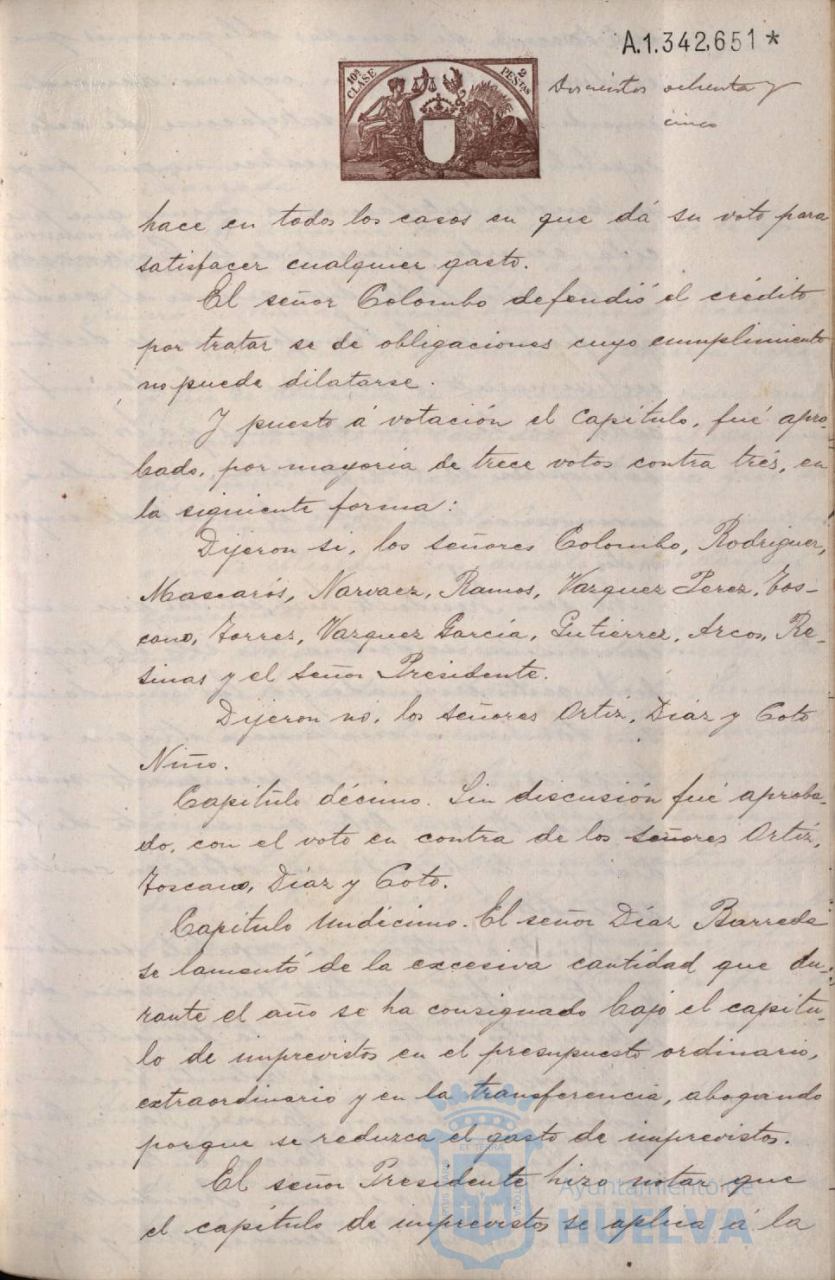 A.1.342,651*
10ª CLASE
2 PESTAS
Doscientos ochenta y
cinco
hace en todos los casos en que dá su voto para
satisfacer cualquier gasto.
El señor Colombo defendió el crédito
por tratar se de obligaciones cuyo cumplimiento
no puede dilatarse.
Y puesto á votación el Capítulo, fué apro-
bado, por mayoria de trece votos contra trés, en
la siguiente forma:
Dijeron si, los señores Colombo, Rodriguez,
Mascarós, Narvaez, Ramos, Vazquez Perez, Tos-
cano, Torres, Vazquez García, Gutiérrez, Arcos, Re-
sinas y el señor Presidente.
Dijeron no, los señores Ortiz, Díaz y Coto
Niño.
Capítulo décimo. Sin discusión fué aproba-
do, con el voto en contra de los señores Ortiz,
Toscano, Díaz y Coto.
Capítulo Undécimo. El señor Díaz Barreda
se lamentó de la excesiva cantidad que du-
rante el año se ha consignado bajo el capítu-
lo de imprevistos en el presupuesto ordinario,
extraordinario y en la transferencia, abogando
porque se reduzca el gasto de imprevistos.
El señor Presidente hizo notar que
el capítulo de imprevistos se aplica á la
Ayuntamiento de
HUELVA